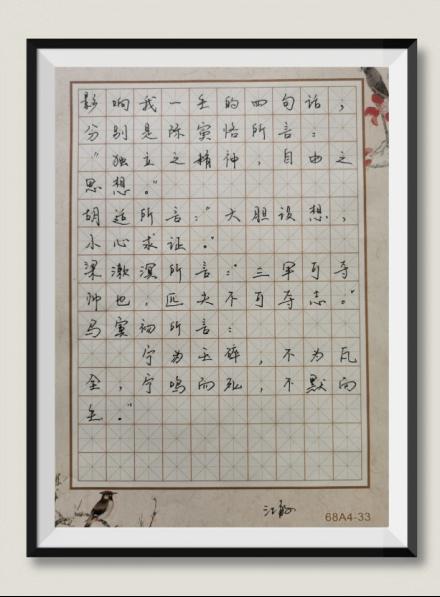 影响我一生的四句话，
分别是陈寅恪所言：
"独立之精神，自由之
思想。"
胡适所言："大胆设想，
小心求证。"
梁漱溟所言："三军可夺
帅也，匹夫不可夺志。"
马寅初所言：
宁为玉碎，不为瓦
全，宁鸣而死，不默而
生。"
68A4-33